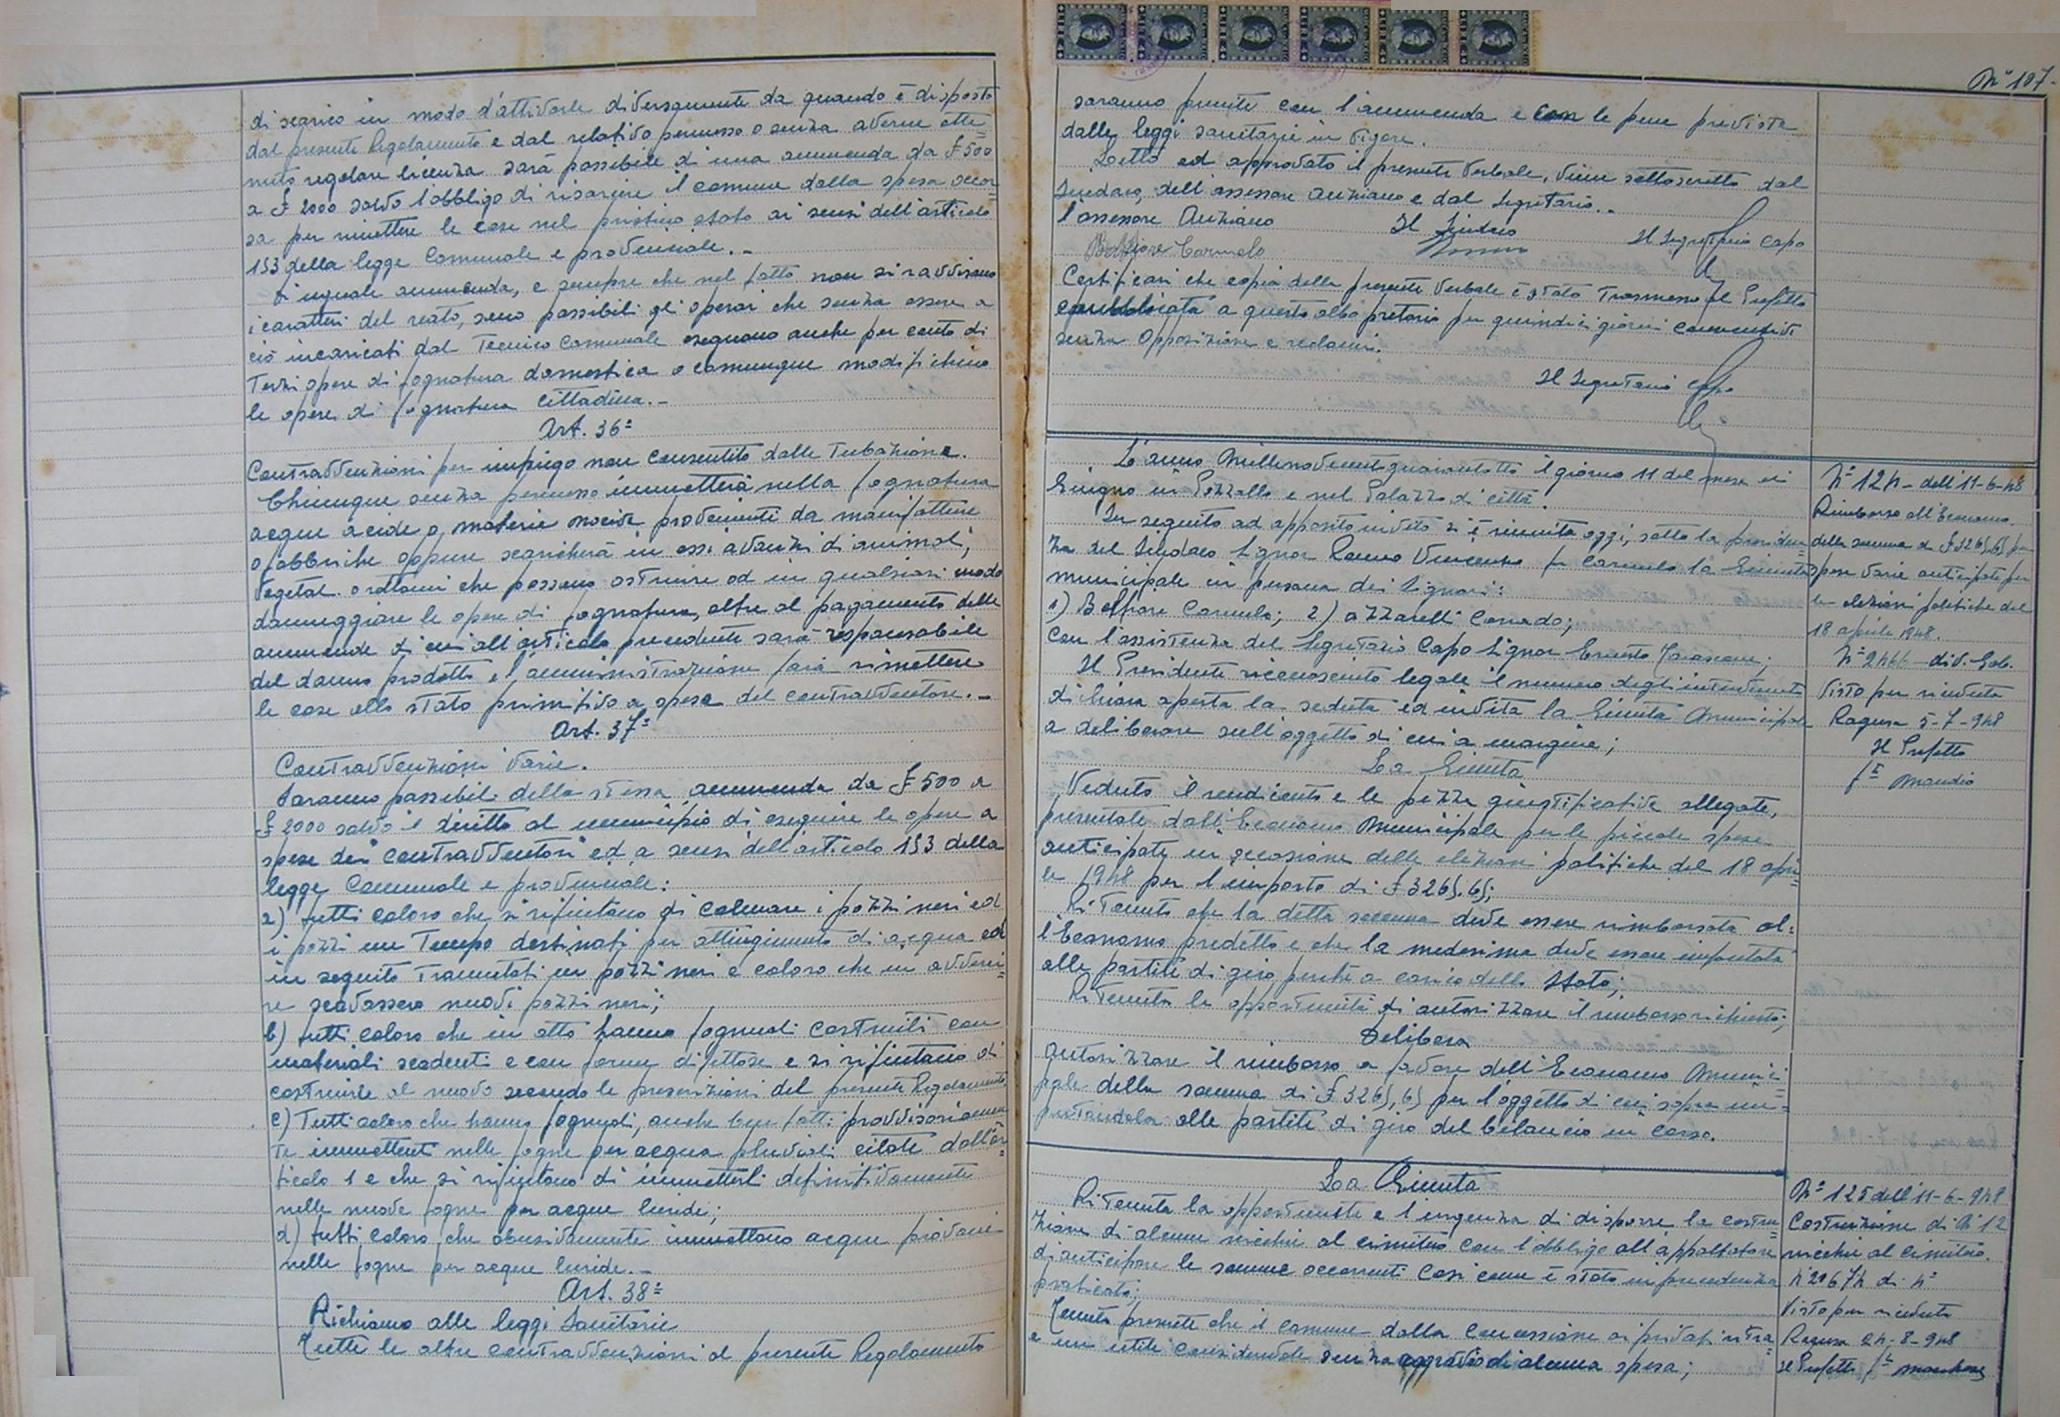 di scarico in modo d'attivarle diversamente da quando è disposto
dal presente Regolamento e dal relativo permesso o senza averne otte=
nuto regolare licenza sarà passibile di una ammenda da £ 500
a £ 2000 salvo l'obbligo di risarcire il comune dalla spesa occor
sa per rimettere le cose nel pristino stato ai sensi dell'articolo
153 della legge Comunale e provinciale.-
Di uguale ammenda, e sempre che nel fatto non si ravvisano
i caratteri del reato, sono passibili gli operai che senza essere a
ciò incaricati dal Tecnico Comunale eseguono anche per conto di
Terzi opere di fognatura domestica o comunque modifichino
le opere di fognatura cittadina.-
Art. 36=
Contravvenzioni per impiego non consentito dalle Tubazione.
Chiunque senza permesso immetterà nella fognatura
acque acide o materie nocive provenienti da manifatture
o fabbriche oppure scaricherà in essi avanzi di animali,
vegetal. o rottami che possano ostruire od in qualsiasi modo
danneggiare le opere di fognatura, oltre al pagamento delle
ammende di cui all'articolo precedente sarà responsabile
del danno prodotto e l'amministrazione farà rimettere
le cose allo stato primitivo a spese del contravventore.-
Art. 37=
Contravvenzioni varie.
Saranno passibili della stessa ammenda da £ 500 a
£ 2000 salvo il diritto al municipio di eseguire le opere a
spese dei contravventori ed a sensi dell'articolo 153 della
legge Comunale e provinciale:
a) tutti coloro che si rifiutano di colmare i pozzi neri ed
i pozzi un Tempo destinati per attingimento di acqua ed
in seguito Tramutati in pozzi neri e coloro che in avveni=
re scavassero nuovi pozzi neri;
b) tutti coloro che in atto hanno fognuoli costruiti con
materiali scadenti e con forme difettose e si rifiutano di
costruirle al nuovo secondo le prescrizioni del presente Regolamento
c) Tutti coloro che hanno fognuoli, anche ben fatti provvisoriamen
te immettenti nelle fogne per acqua pluviali citate dall'ar=
ticolo 1 e che si rifiutano di immetterli definitivamente
nelle nuove fogne per acque luride;
d) tutti coloro che abusivamente immettono acque piovane
nelle fogne per acque luride.-
Art. 38=
Richiamo alle leggi Sanitarie
Tutte le altre contravvenzioni al presente Regolamento
N° 107-
saranno punite con l'ammenda e con le pene previste
dalle leggi sanitarie in vigore.
Letto ed approvato il presente Verbale, viene sottoscritto dal
Sindaco, dell'assessore anziano e dal Segretario..
l'assessore Anziano Il Sindaco Il Segretario Capo
Belfiore Carmelo
Certificasi che copia della presente Verbale è stato Trasmesso al Prefetto
e pubblicata a questo albo pretorio per quindici giorni consecutivi
senza Opposizione e reclami.
Il Segretario Capo
L'anno Millenovecentoquarantotto il giorno 11 del mese di
Giugno in Pozzallo e nel Palazzo di città.
In seguito ad apposito invito si è riunita oggi, sotto la presiden=
za del Sindaco Signor Vincenzo fu Carmelo la Giunta
municipale in persona dei Signori:
1) Belfiore Carmelo; 2) Azzarelli Corrado;
con l'assistenza del Segretario Capo Signor Ernesto
Il Presidente riconosciuto legale il numero degli intervenuti
dichiara aperta la seduta ed invita la Giunta Municipale
a deliberare sull'oggetto di cui a margine;
La Giunta
Veduto il rendiconto e le pezze giustificative allegate,
presentate dall'Economo Municipale per le piccole spese
anticipate in occasione delle elezioni politiche del 18 apri=
le 1948 per l'importo di £ 3265,65;
Ritenuto che la detta somma deve essere rimborsata al=
l'Economo predetto e che la medesima deve essere imputata
alle partite di giro perchè a carico dello Stato;
Ritenuta la opportunità di autorizzare il rimborso richiesto;
Delibera
autorizzare il rimborso a favore dell'Economo Munici=
pale della somma di £ 3265,65 per l'oggetto di cui sopra im=
putandola alle partite di giro del bilancio in corso.
La Giunta
Ritenuta la opportunità e l'urgenza di disporre la costru=
zione di alcune nicchie al cimitero con l'obbligo all'appaltatore
di anticipare le somme occorrenti così come è stato in precedenza
praticato;
Tenuto presente che il comune dalla concessione ai privati ritra=
e un utile considerevole senza aggravio di alcuna spesa;
N° 124- dell'11-6-48
Rimborso all'Economo
della somma di £ 3265,65 per
spese varie anticipate per
le elezioni politiche del
18 aprile 1948.
N° 2466 div. Gab.
Visto per ricevuta
Ragusa 5-7-948
Il Prefetto
N° 125 dell'11-6-948
Costruzione di N° 12
nicchie al cimitero.
N° 20674 di n°
Visto per ricevuta
Ragusa 24-8-948
Il Prefetto